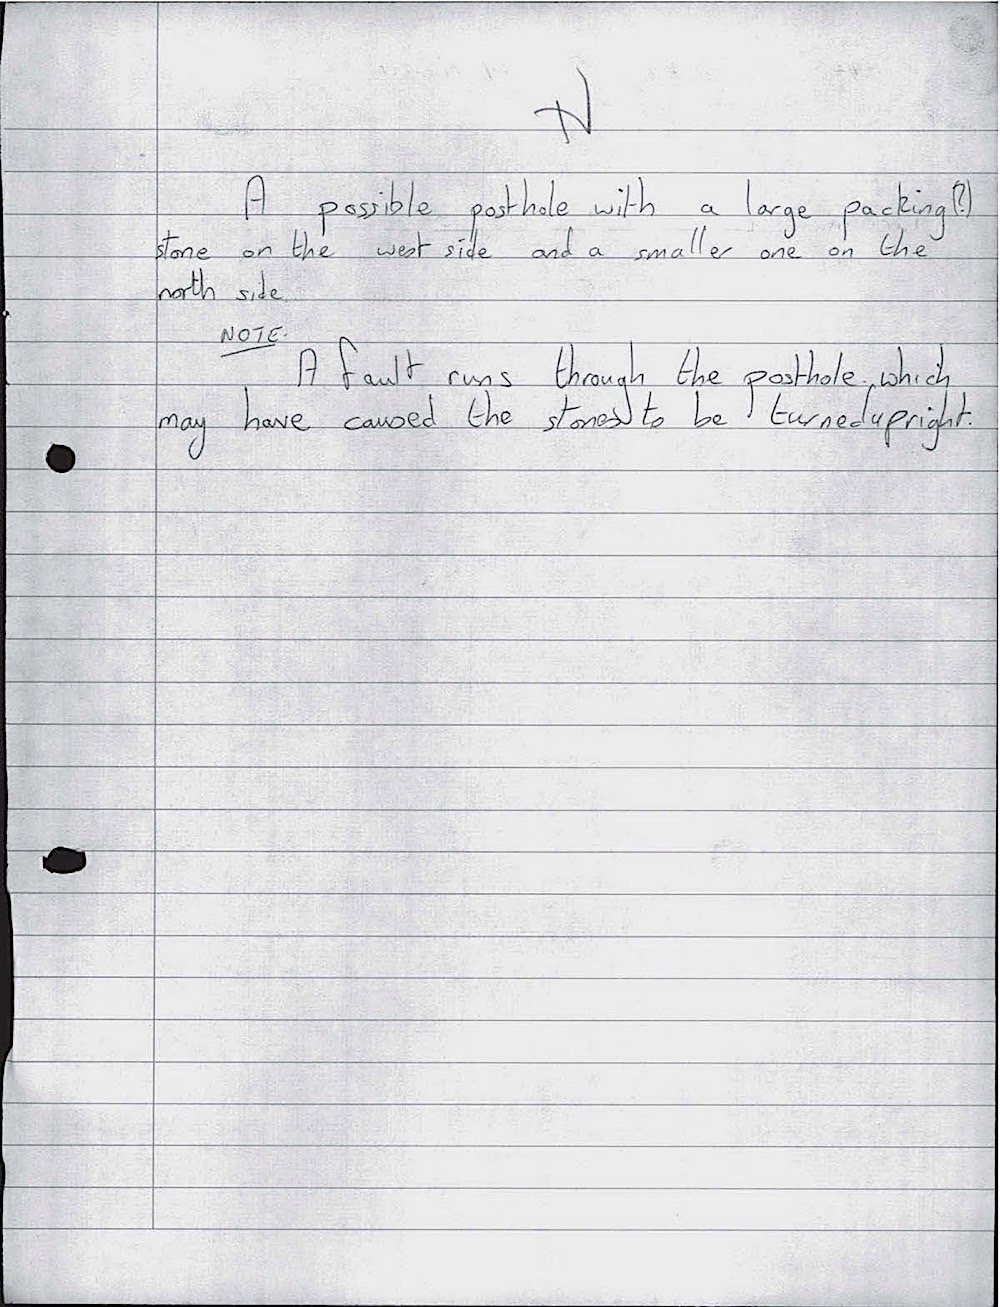 N
A possible posthole with a large packing(?)
stone on the west side and a smaller one on the
north side.
NOTE.
A fault runs through the posthole, which
may have caused the stones to be turned upright.